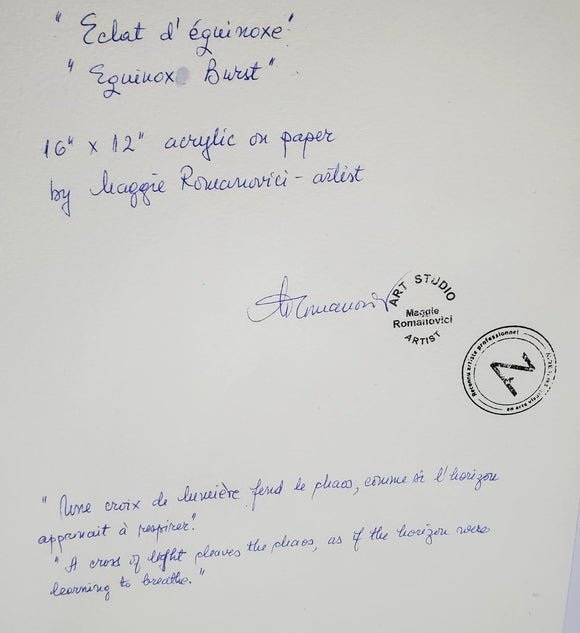 "Eclat d'équinoxe"
"Equinox Burst"
16" x 12" acrylic on paper
by Maggie Romanovici - artist
Romanovici
ART STUDIO
Maggie
Romanovici
ARTIST
Reconnu artiste professionnel
en arts visuels
"Une croix de lumière fend le chaos, comme si l'horizon
apprenait à respirer."
"A cross of light cleaves the chaos, as if the horizon were
learning to breathe."